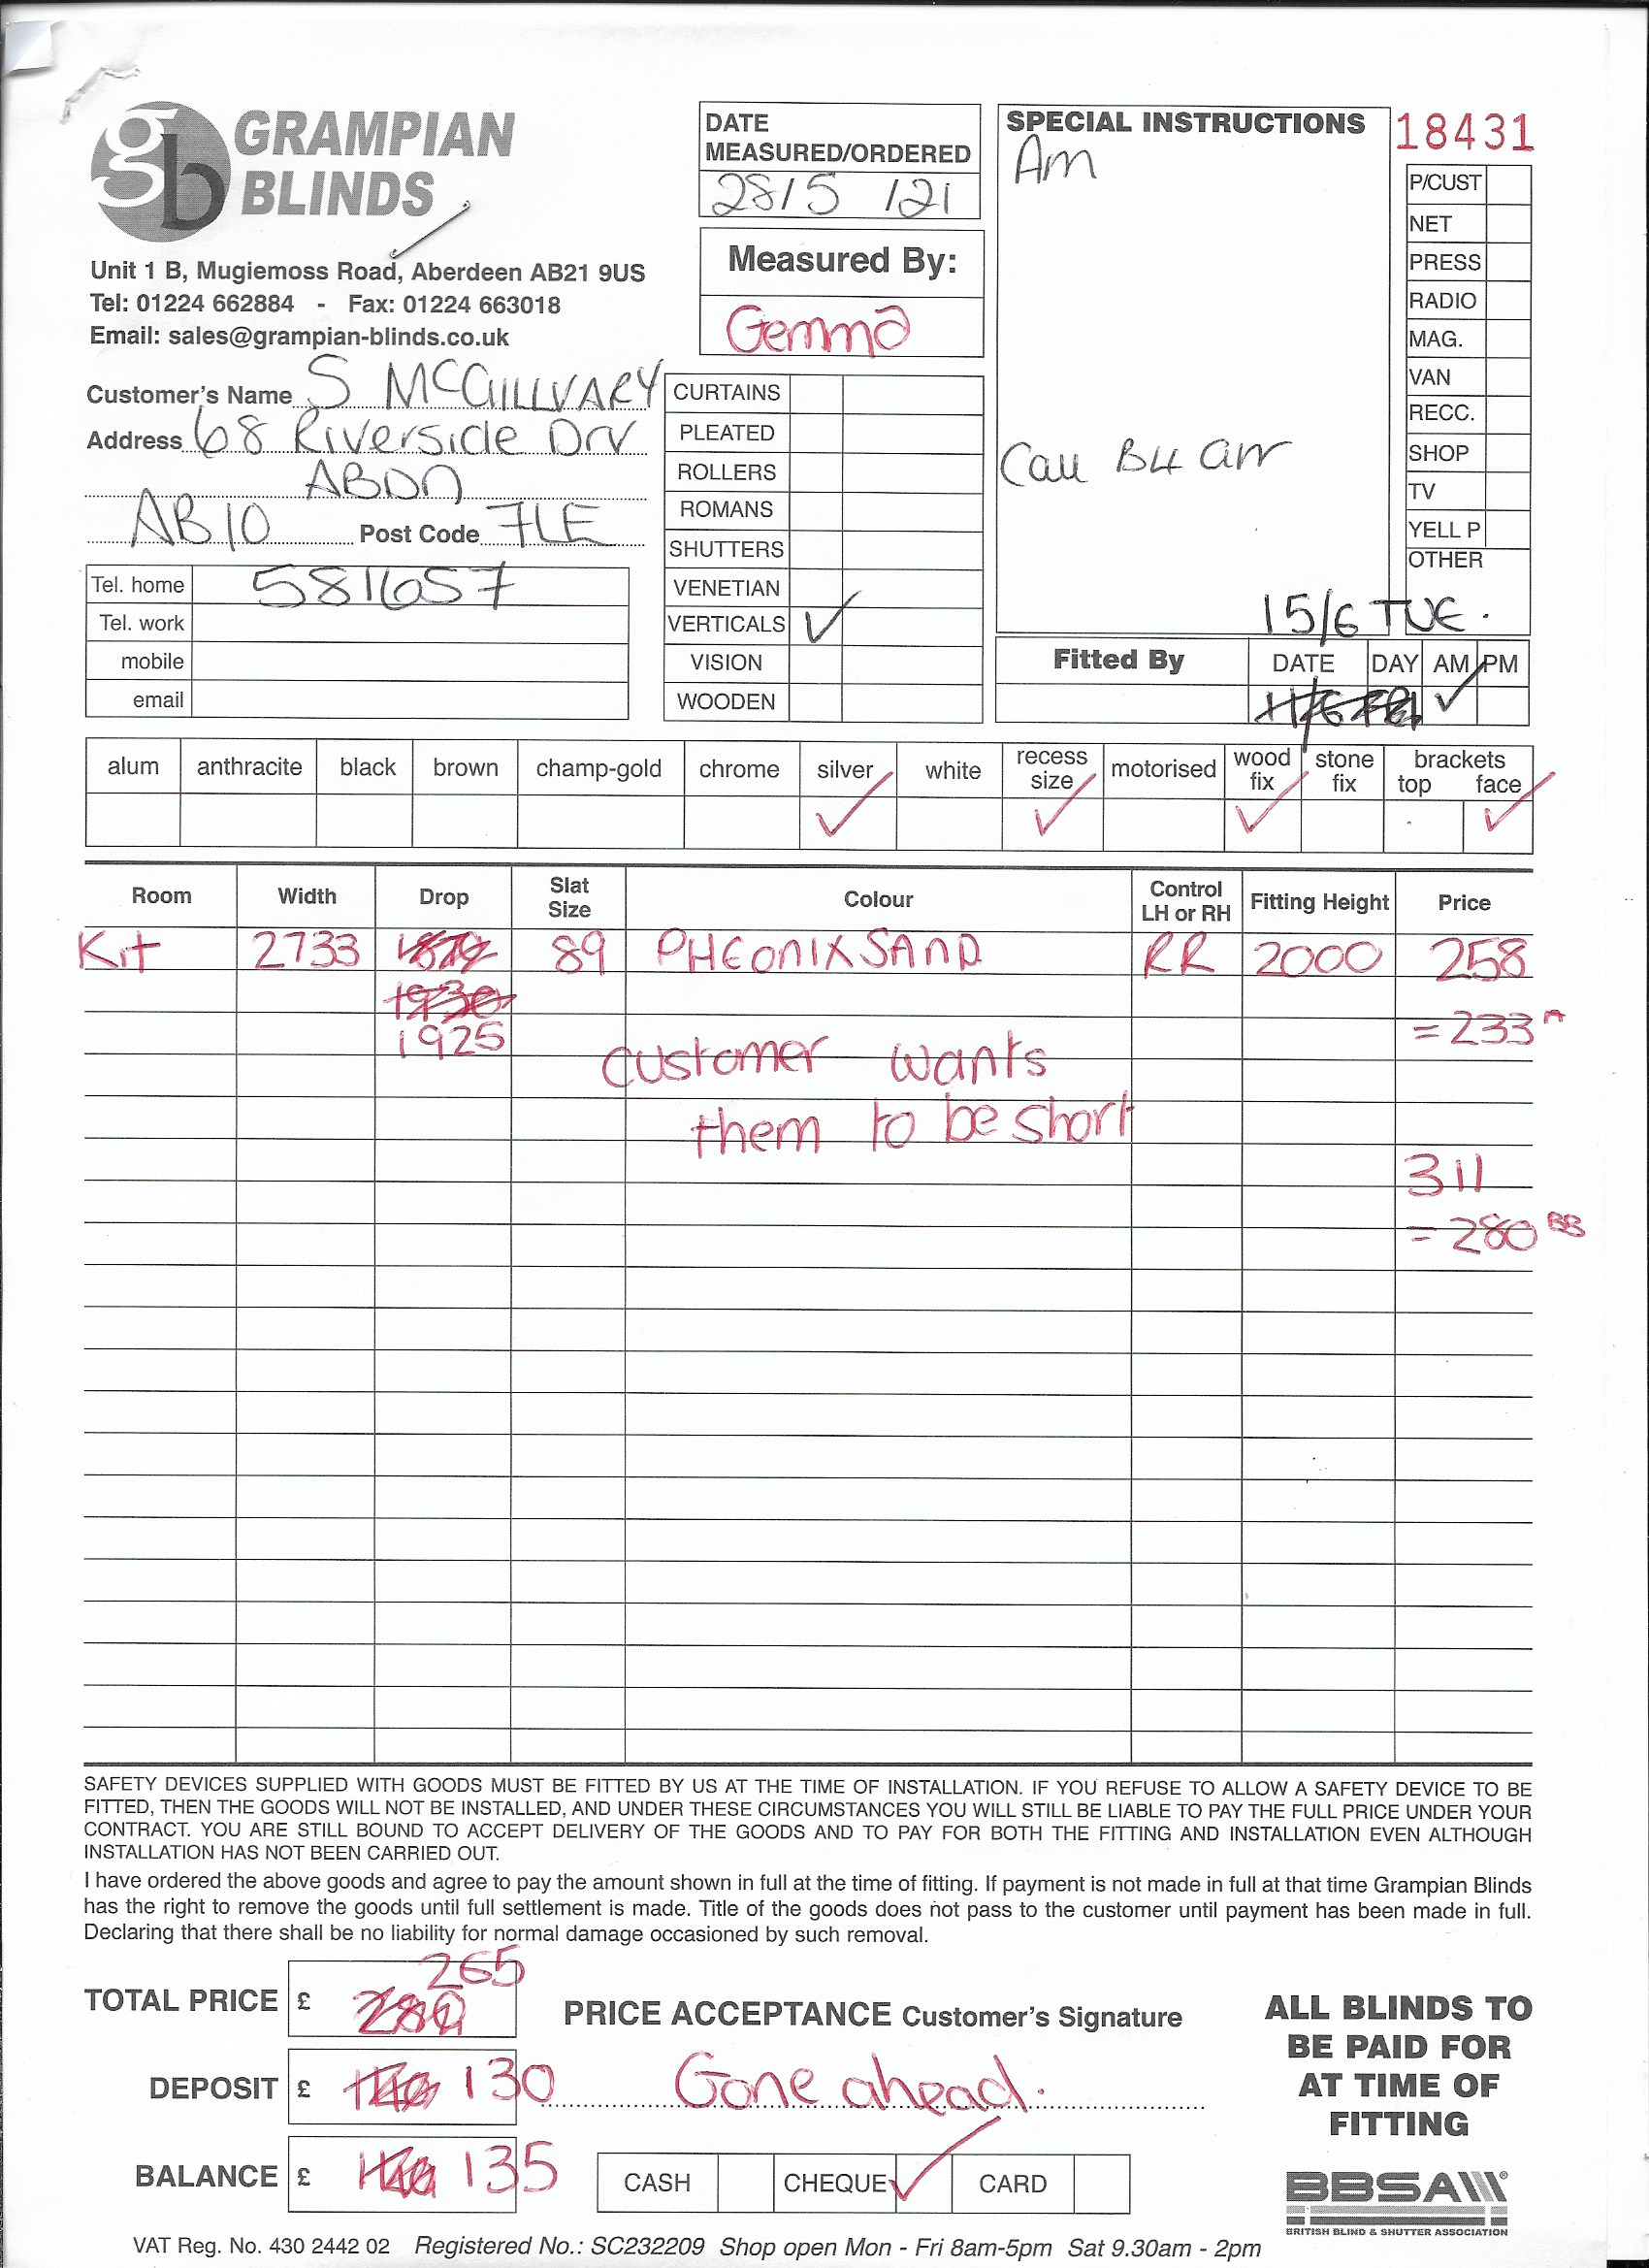 GRAMPIAN
BLINDS
gb
Unit 1 B, Mugiemoss Road, Aberdeen AB21 9US
Tel: 01224 662884 - Fax: 01224 663018
Email: sales@grampian-blinds.co.uk
DATE
MEASURED/ORDERED
28/5 /21
Measured By:
Gemma
SPECIAL INSTRUCTIONS
Am
Call B4 arr
18431
P/CUST
NET
PRESS
RADIO
MAG.
VAN
RECC.
SHOP
TV
YELL P
OTHER
Customer's Name S MCGILLVARY
Address 68 Riverside Drv
ABDN
AB10 Post Code 7LE
Tel. home 581657
Tel. work
mobile
email
CURTAINS
PLEATED
ROLLERS
ROMANS
SHUTTERS
VENETIAN
VERTICALS ✓
VISION
WOODEN
15/6 TUE.
Fitted By DATE DAY AM PM
✓
alum anthracite black brown champ-gold chrome silver white recess size motorised wood fix stone fix brackets top face
✓ ✓ ✓ ✓
Room Width Drop Slat Size Colour Control LH or RH Fitting Height Price
Kit 2733 1879 89 PHEONIX SAND RR 2000 258
1930
= 233 A
1925
customer wants
them to be short
311
= 280 BB
SAFETY DEVICES SUPPLIED WITH GOODS MUST BE FITTED BY US AT THE TIME OF INSTALLATION. IF YOU REFUSE TO ALLOW A SAFETY DEVICE TO BE
FITTED, THEN THE GOODS WILL NOT BE INSTALLED, AND UNDER THESE CIRCUMSTANCES YOU WILL STILL BE LIABLE TO PAY THE FULL PRICE UNDER YOUR
CONTRACT. YOU ARE STILL BOUND TO ACCEPT DELIVERY OF THE GOODS AND TO PAY FOR BOTH THE FITTING AND INSTALLATION EVEN ALTHOUGH
INSTALLATION HAS NOT BEEN CARRIED OUT.
I have ordered the above goods and agree to pay the amount shown in full at the time of fitting. If payment is not made in full at that time Grampian Blinds
has the right to remove the goods until full settlement is made. Title of the goods does not pass to the customer until payment has been made in full.
Declaring that there shall be no liability for normal damage occasioned by such removal.
265
TOTAL PRICE £ 280
PRICE ACCEPTANCE Customer's Signature
DEPOSIT £ 140 130
Gone ahead.
BALANCE £ 140 135
CASH CHEQUE ✓ CARD
ALL BLINDS TO
BE PAID FOR
AT TIME OF
FITTING
BBSA
BRITISH BLIND & SHUTTER ASSOCIATION
VAT Reg. No. 430 2442 02 Registered No.: SC232209 Shop open Mon - Fri 8am-5pm Sat 9.30am - 2pm